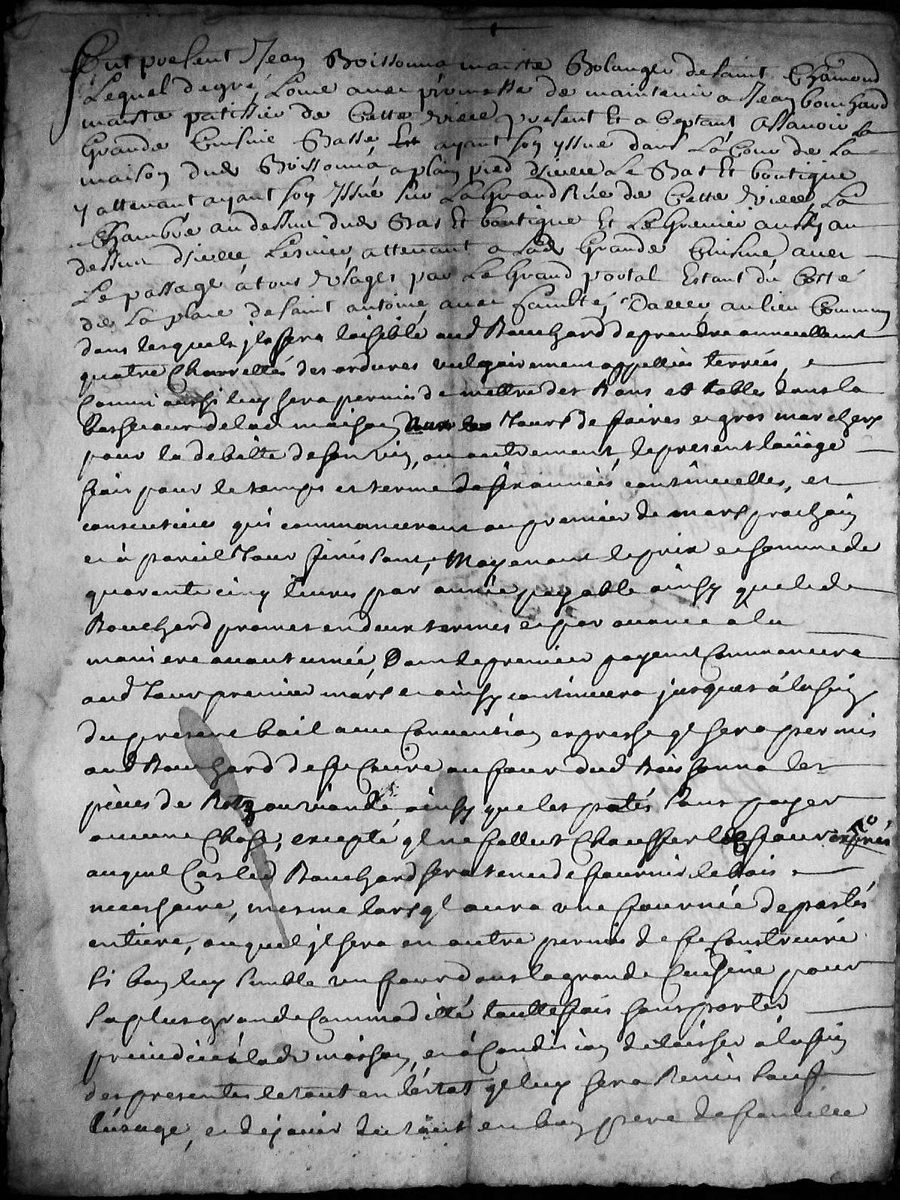 Fut present Jean Boissonna maistre Bolanger de Saint Chamond
Lequel de gré, Loue avec promesse de maintenir a Jean bouchard
maistre patissier de Cette ville present et aceptant Assavoir La
Grande Cuisine Basse ayant son yssue dans La Cour de La
maison dud Boissonna a plain pied d'icelle Le Bas Et boutique
y attenant ayant son yssüe sur La Grand Rüe de Cette ville, La
Chambre au dessus dud Bas Et boutique Et Le Grenier aussy au
dessus d'icelle attenant a Lad Grande Cuisine, avec
Le passage a tous Usages par Le Grand portail Estant du Costé
de La place de Saint antoine, avec faculté, au lieu Commun
dans lesquels il sera loisible aud Bouchard de prendre annuellement
quatre Charrettés des ordures vulgairement appellées terrées,
Comm' aussi luy sera permis de mettre des Bans et tables dans la
de lad maison Jours de foires et gros marchers
pour la debitte de son vin, ou autrement, le present loüage
fait pour le temps et terme de années continuelles, et
consecutives qui commanceront au premier de mars prochain
et à pareil Jour finissant, Moyenant le prix et somme de
quarante cinq livres par année payable ainsy que led
Bouchard promet en deux termes et par avance a la
maniere accoutumée, Dont le premier payemt Commancera
aud Jour premier mars et ainsy continuera jusques à la fin
du present bail avec Convention expresse ql sera permis
aud Bouchard de fe Cuire au four dud Boissonna les
pièces de ou viande ainsy que les patés sans payer
aucune Chose, excepté ql ne fallut Chauffer le four exprés
auquel Cas led Bouchard sera tenu de fournir le bois
necessaire, mesme lors ql aura une fournée de pastés
entiere, auquel il sera en outre permis de fe Construire
si bon luy semble un four dans la grande Cuisine pour
sa plus grande Commodité touttefois sans porter
preiudice à lad maison, et à Condition de laisser à la fin
des presentes le tout en l'estat ql luy sera Remis sauf
l'usage, et de jouir du tout en bon pere de famille